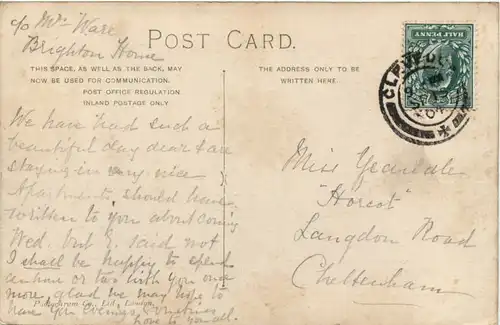 c/o Mrs Ware
Brighton Home
POST CARD.
THIS SPACE, AS WELL AS THE BACK, MAY
NOW BE USED FOR COMMUNICATION.
POST OFFICE REGULATION.
INLAND POSTAGE ONLY
THE ADDRESS ONLY TO BE
WRITTEN HERE.
HALF PENNY
We have had such a
beautiful day dear & are
staying in very nice
Apartments, should have
written to you about coming
Wed. but E. said not
I shall be happy to spend
an hour or two with you once
more, glad we may hope to
have you
love to you all.
Photochrom Co., Ltd., London.
Miss Yeandle
"Horcot"
Langdon Road
Cheltenham